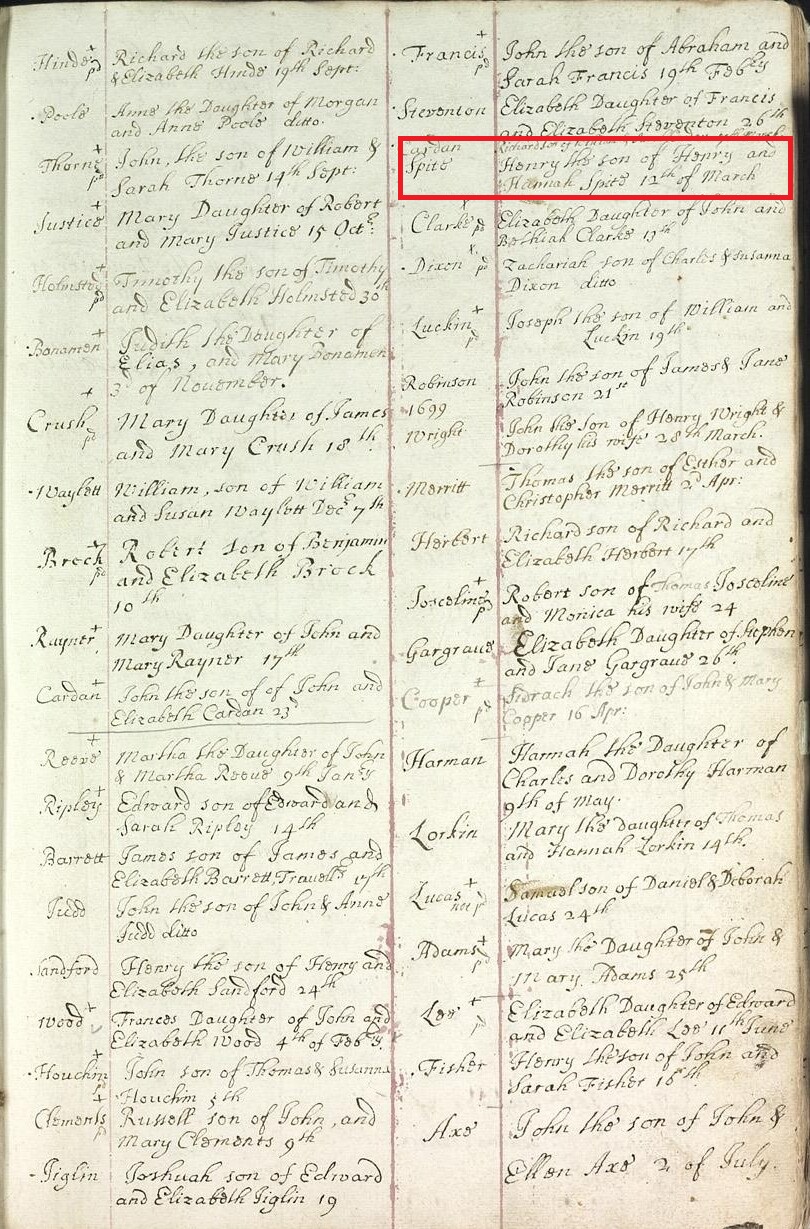 Hinde + pd
Richard the son of Richard
& Elizabeth Hinde 19th Sept:
Poole
Anne the Daughter of Morgan
and Anne Poole ditto.
Thorne + pd
John, the son of William &
Sarah Thorne 14th Sept:
Justice +
Mary Daughter of Robert
and Mary Justice 15 Octr:
Holmsted + pd
Timothy the son of Timothy
and Elizabeth Holmsted 30th
Bonamen +
Judith the Daughter of
Elias, and Mary Bonamen
3d of November.
Crush + pd
Mary Daughter of James
and Mary Crush 18th
Waylett
William, son of William
and Susan Waylett Decr 7th
Brock pd
Robert son of Benjamin
and Elizabeth Brock
10th
Rayner +
Mary Daughter of John and
Mary Rayner 17th
Cardan +
John the son of of John and
Elizabeth Cardan 23d
Reeve +
Martha the Daughter of John
& Martha Reeve 9th Jany
Ripley +
Edward son of Edward and
Sarah Ripley 14th
Barrett
James son of James and
Elizabeth Barrett, Travellrs 17th
Judd
John the son of John & Anne
Judd ditto
Sandford
Henry the son of Henry and
Elizabeth Sandford 24th
Wood +
Frances Daughter of John and
Elizabeth Wood 4th of Feby.
Houchim +
John son of Thomas & Susanna
Houchim 5th
Clements + pd
Russell son of John, and
Mary Clements 9th
Jiglin
Joshuah son of Edward
and Elizabeth Jiglin 19
Francis + pd
John the son of Abraham and
Sarah Francis 19th Febry
Steventon
Elizabeth Daughter of Francis
and Elizabeth Steventon 26th
Cardan
Richard son of
Spite
Henry the son of Henry and
Hannah Spite 12th of March
Clarke x pd
Elizabeth Daughter of John and
Bethiah Clarke 13th
Dixon x pd
Zachariah son of Charles & Susanna
Dixon ditto
Luckin + pd
Joseph the son of William and
Luckin 19th
Robinson
John the son of James & Jane
Robinson 21st
1699
Wright
John the son of Henry Wright &
Dorothy his wife 28th March.
Merritt
Thomas the son of Esther and
Christopher Merritt 2d Apr:
Herbert
Richard son of Richard and
Elizabeth Herbert 17th
Josceline + pd
Robert son of Thomas Josceline
and Monica his wife 24
Gargrave
Elizabeth Daughter of Stephen
and Jane Gargrave 26th.
Cooper + pd
Sidrach the son of John & Mary
Copper 16 Apr:
Harman
Hannah the Daughter of
Charles and Dorothy Harman
9th of May.
Lorkin
Mary the Daughter of Thomas
and Hannah Lorkin 14th.
Lucas + not pd
Samuel son of Daniel & Deborah
Lucas 24th
Adams + pd
Mary the Daughter of John &
Mary Adams 25th
Lee + pd
Elizabeth Daughter of Edward
and Elizabeth Lee 11th June
Fisher
Henry the son of John and
Sarah Fisher 16th
Axe
John the son of John &
Ellen Axe 2 of July.